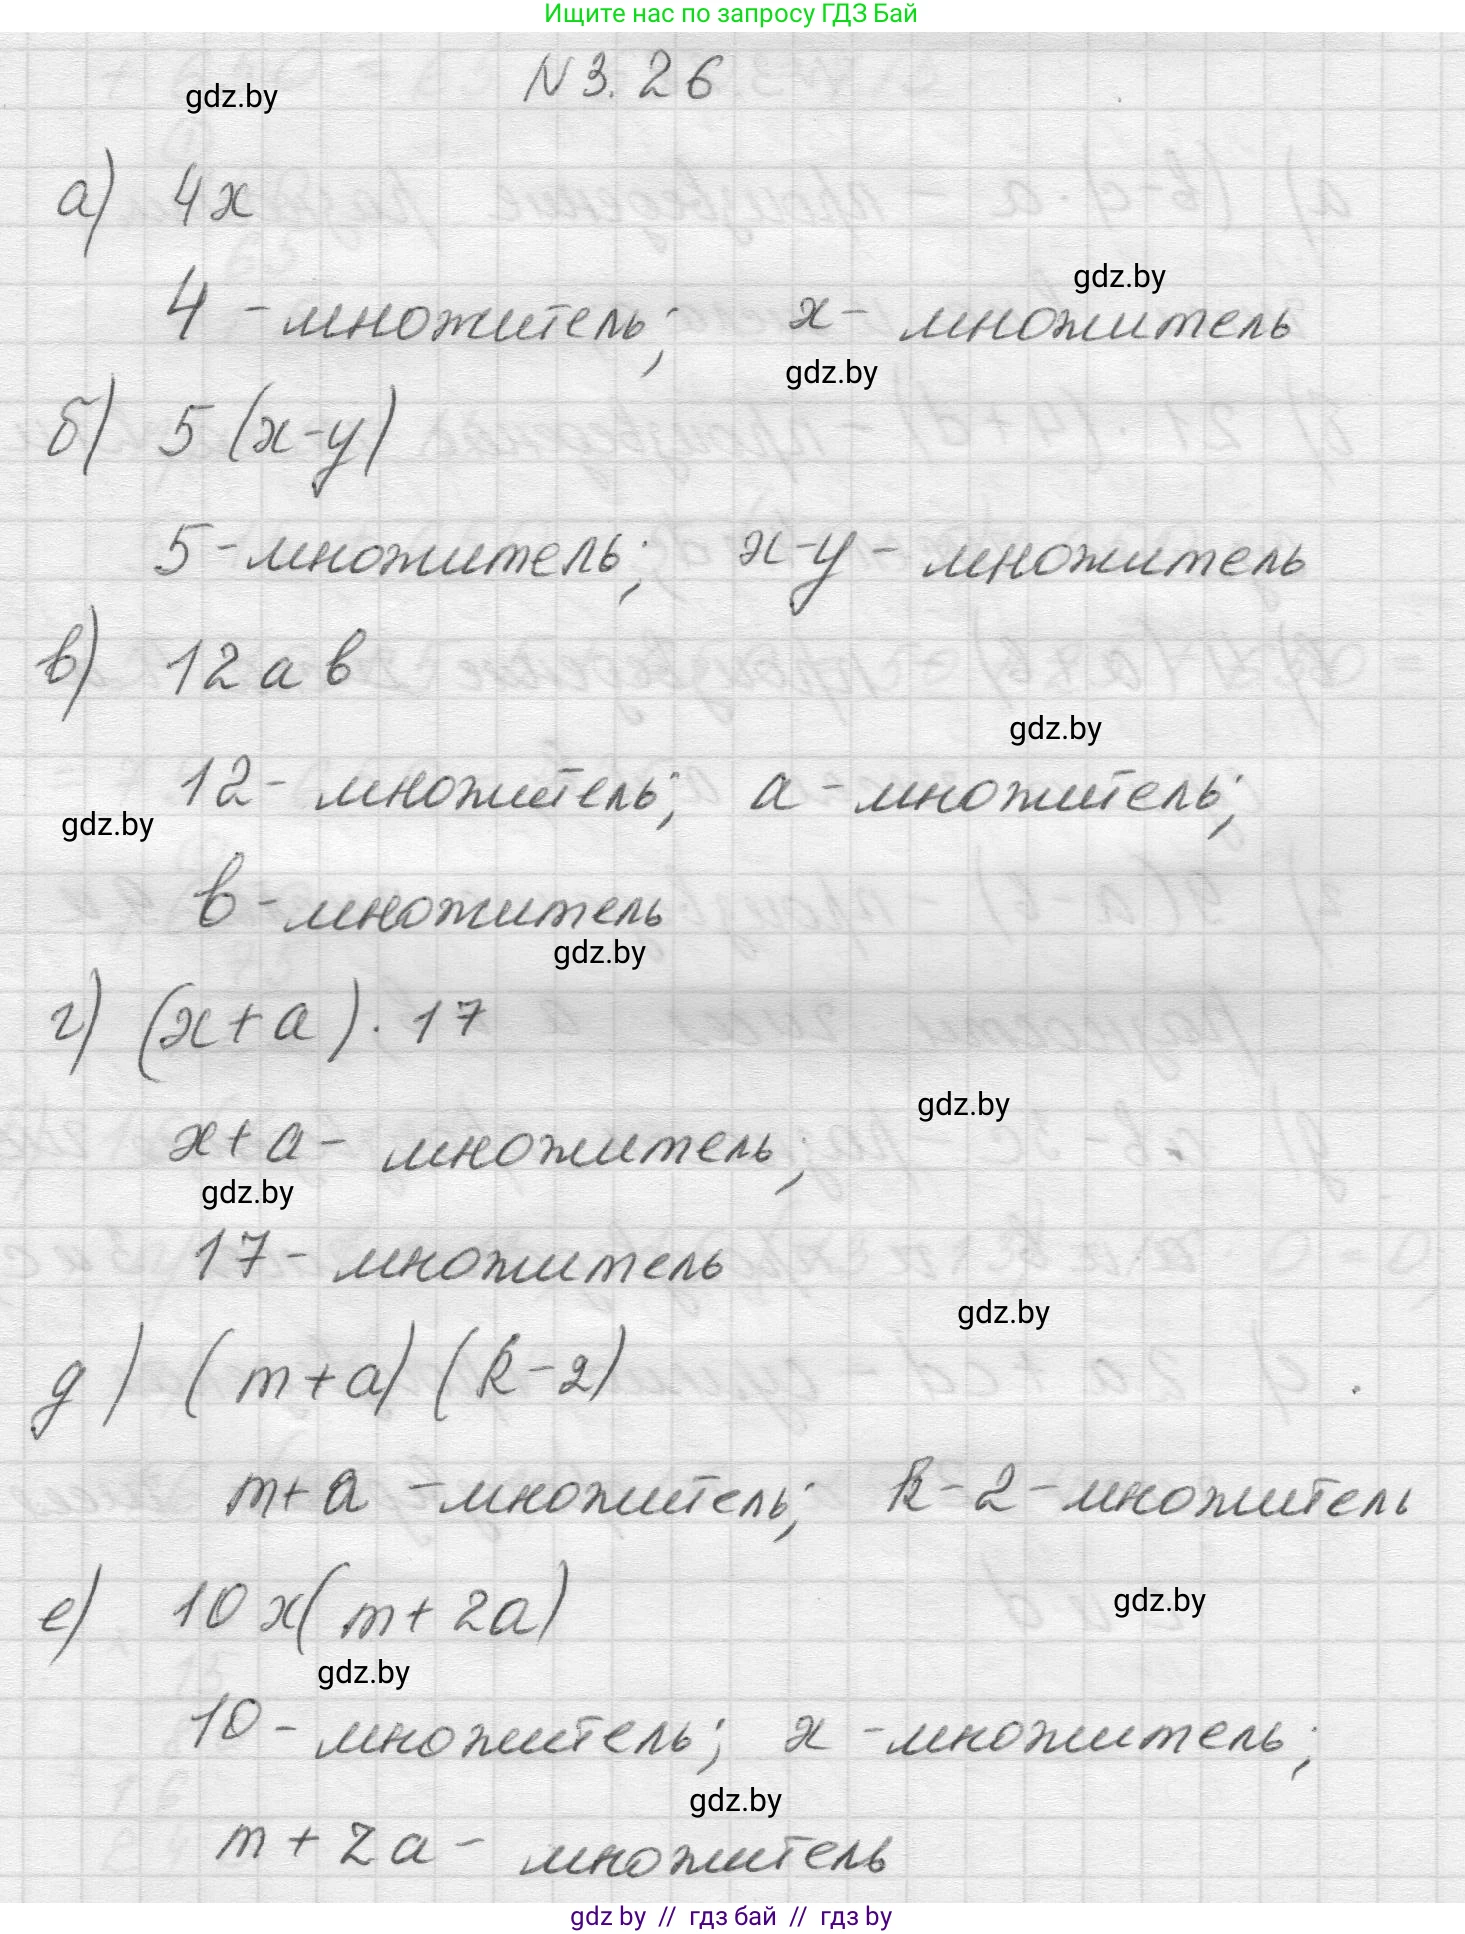 Ищите нас по запросу ГДЗ Бай
N 3.26
gdz.by
а) 4x
gdz.by
4 - множитель; x - множитель
gdz.by
б) 5 (x-y)
5 - множитель; x-y - множитель
в) 12 a в
gdz.by
12 - множитель; a - множитель;
gdz.by
в - множитель
gdz.by
г) (x+a) · 17
gdz.by
x+a - множитель;
gdz.by
17 - множитель
gdz.by
д) (m+a) (k-2)
m+a - множитель; k-2 - множитель
gdz.by
е) 10 x(m+2a)
gdz.by
10 - множитель; x - множитель;
gdz.by
m+2a - множитель
gdz by // гдз бай // гдз by